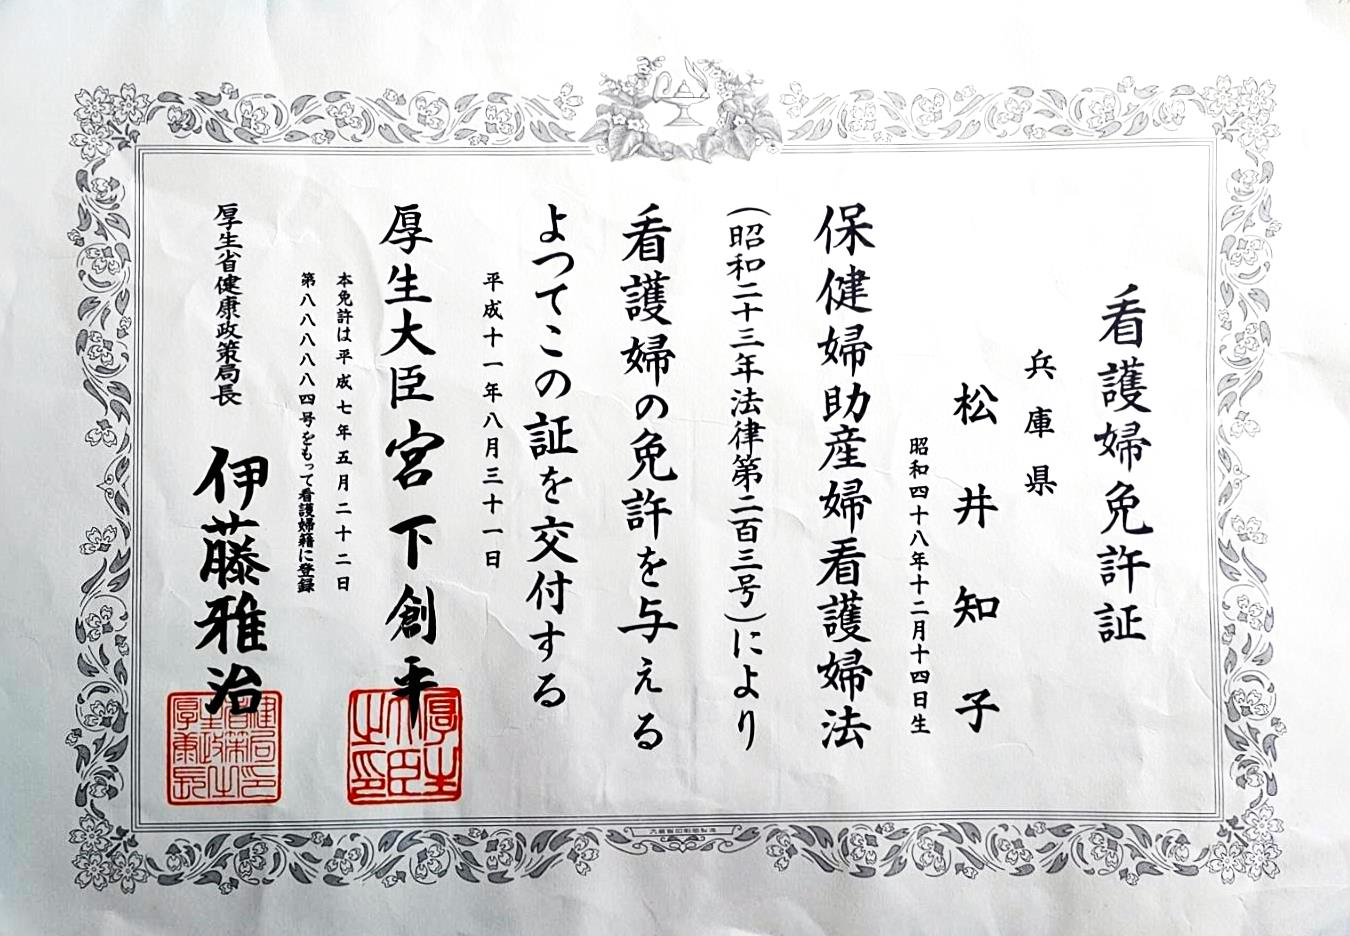 看護婦免許証
兵庫県
松井知子
昭和四十八年十二月十四日生
保健婦助産婦看護婦法
（昭和二十三年法律第二百三号）により
看護婦の免許を与える
よつてこの証を交付する
平成十一年八月三十一日
厚生大臣 宮下創平
本免許は平成七年五月二十二日
第八八八八八四号をもって看護婦籍に登録
厚生省健康政策局長 伊藤雅治
厚生大臣之印